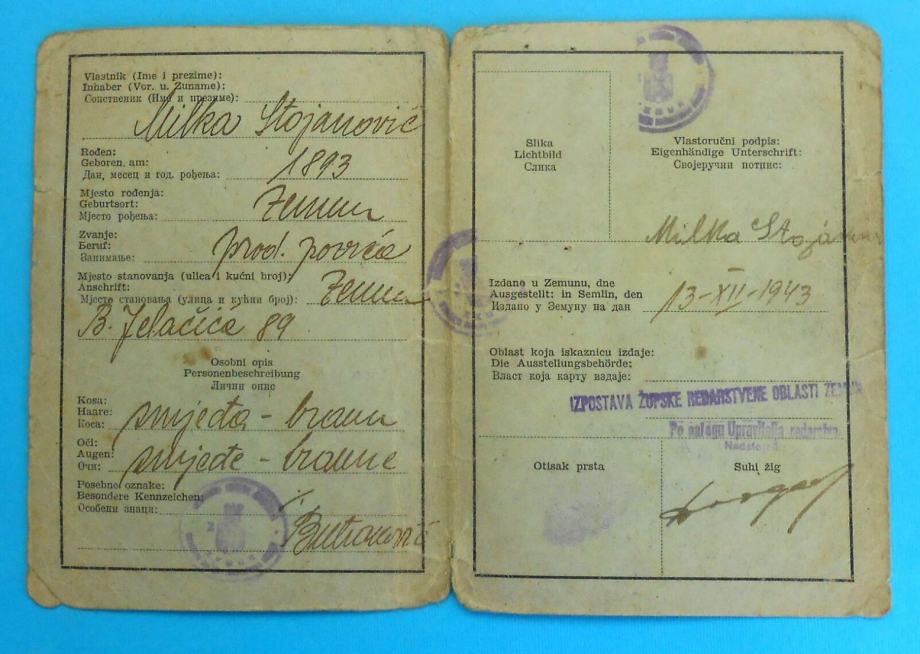 Vlastnik (Ime i prezime):
Inhaber (Vor. u. Zuname):
Сопственик (Име и презиме):
Milka Stojanović
Rođen:
Geboren am:
Дан, месец и год. рођења:
1893
Mjesto rođenja:
Geburtsort:
Мјесто рођења:
Zemun
Zvanje:
Beruf:
Занимање:
prod. povrća
Mjesto stanovanja (ulica i kućni broj):
Anschrift:
Мјесте становања (улица и кућни број):
Zemun
B. Jelačića 89
Osobni opis
Personenbeschreibung
Лични опис
Kosa:
Haare:
Коса:
smjeđa - braun
Oči:
Augen:
Очи:
smjeđe - braune
Posebne oznake:
Besondere Kennzeichen:
Особени знаци:
Slika
Lichtbild
Слика
Vlastoručni podpis:
Eigenhändige Unterschrift:
Својеручни потпис:
Milka Stojanov
Izdano u Zemunu, dne
Ausgestellt: in Semlin, den
Издано у Земуну на дан
13-XII-1943
Oblast koja iskaznicu izdaje:
Die Ausstellungsbehörde:
Власт која карту издаје:
IZPOSTAVA ŽUPSKE REDARSTVENE OBLASTI ZEMUN
Po nalogu Upravitelja redarstva
Otisak prsta
Suhi žig